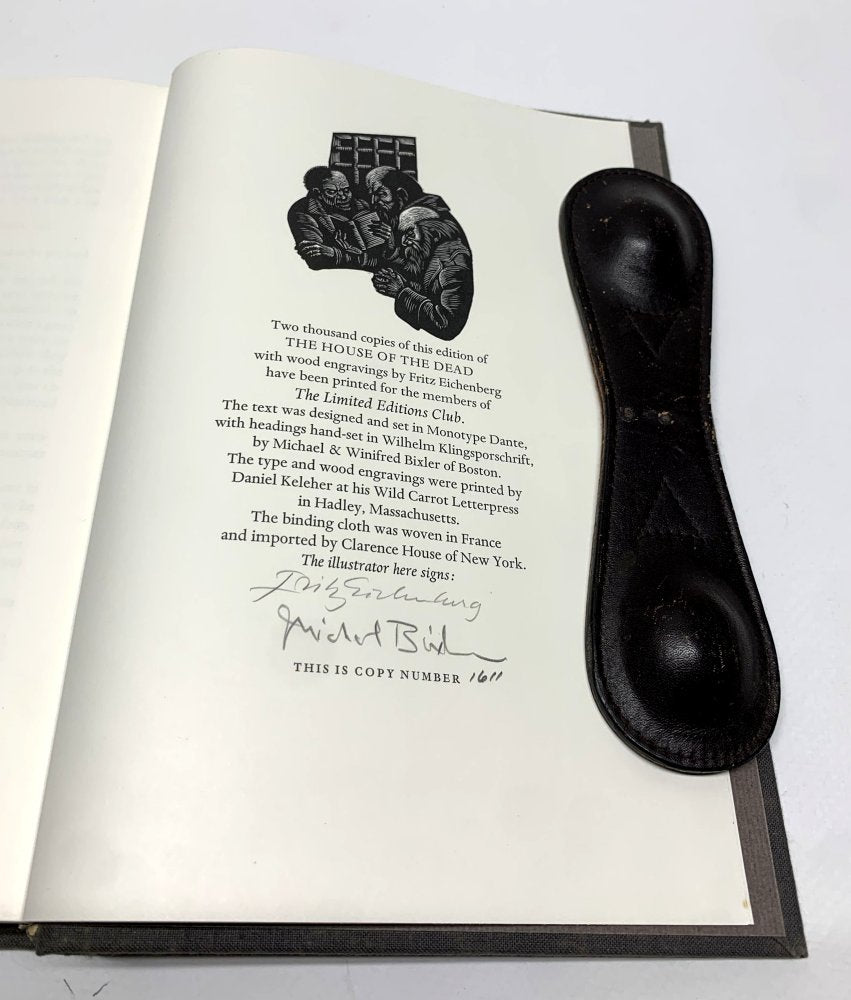 Two thousand copies of this edition of
THE HOUSE OF THE DEAD
with wood engravings by Fritz Eichenberg
have been printed for the members of
The Limited Editions Club.
The text was designed and set in Monotype Dante,
with headings hand-set in Wilhelm Klingsporschrift,
by Michael & Winifred Bixler of Boston.
The type and wood engravings were printed by
Daniel Keleher at his Wild Carrot Letterpress
in Hadley, Massachusetts.
The binding cloth was woven in France
and imported by Clarence House of New York.
The illustrator here signs:
Fritz Eichenberg
Michael Bixler
THIS IS COPY NUMBER 1611